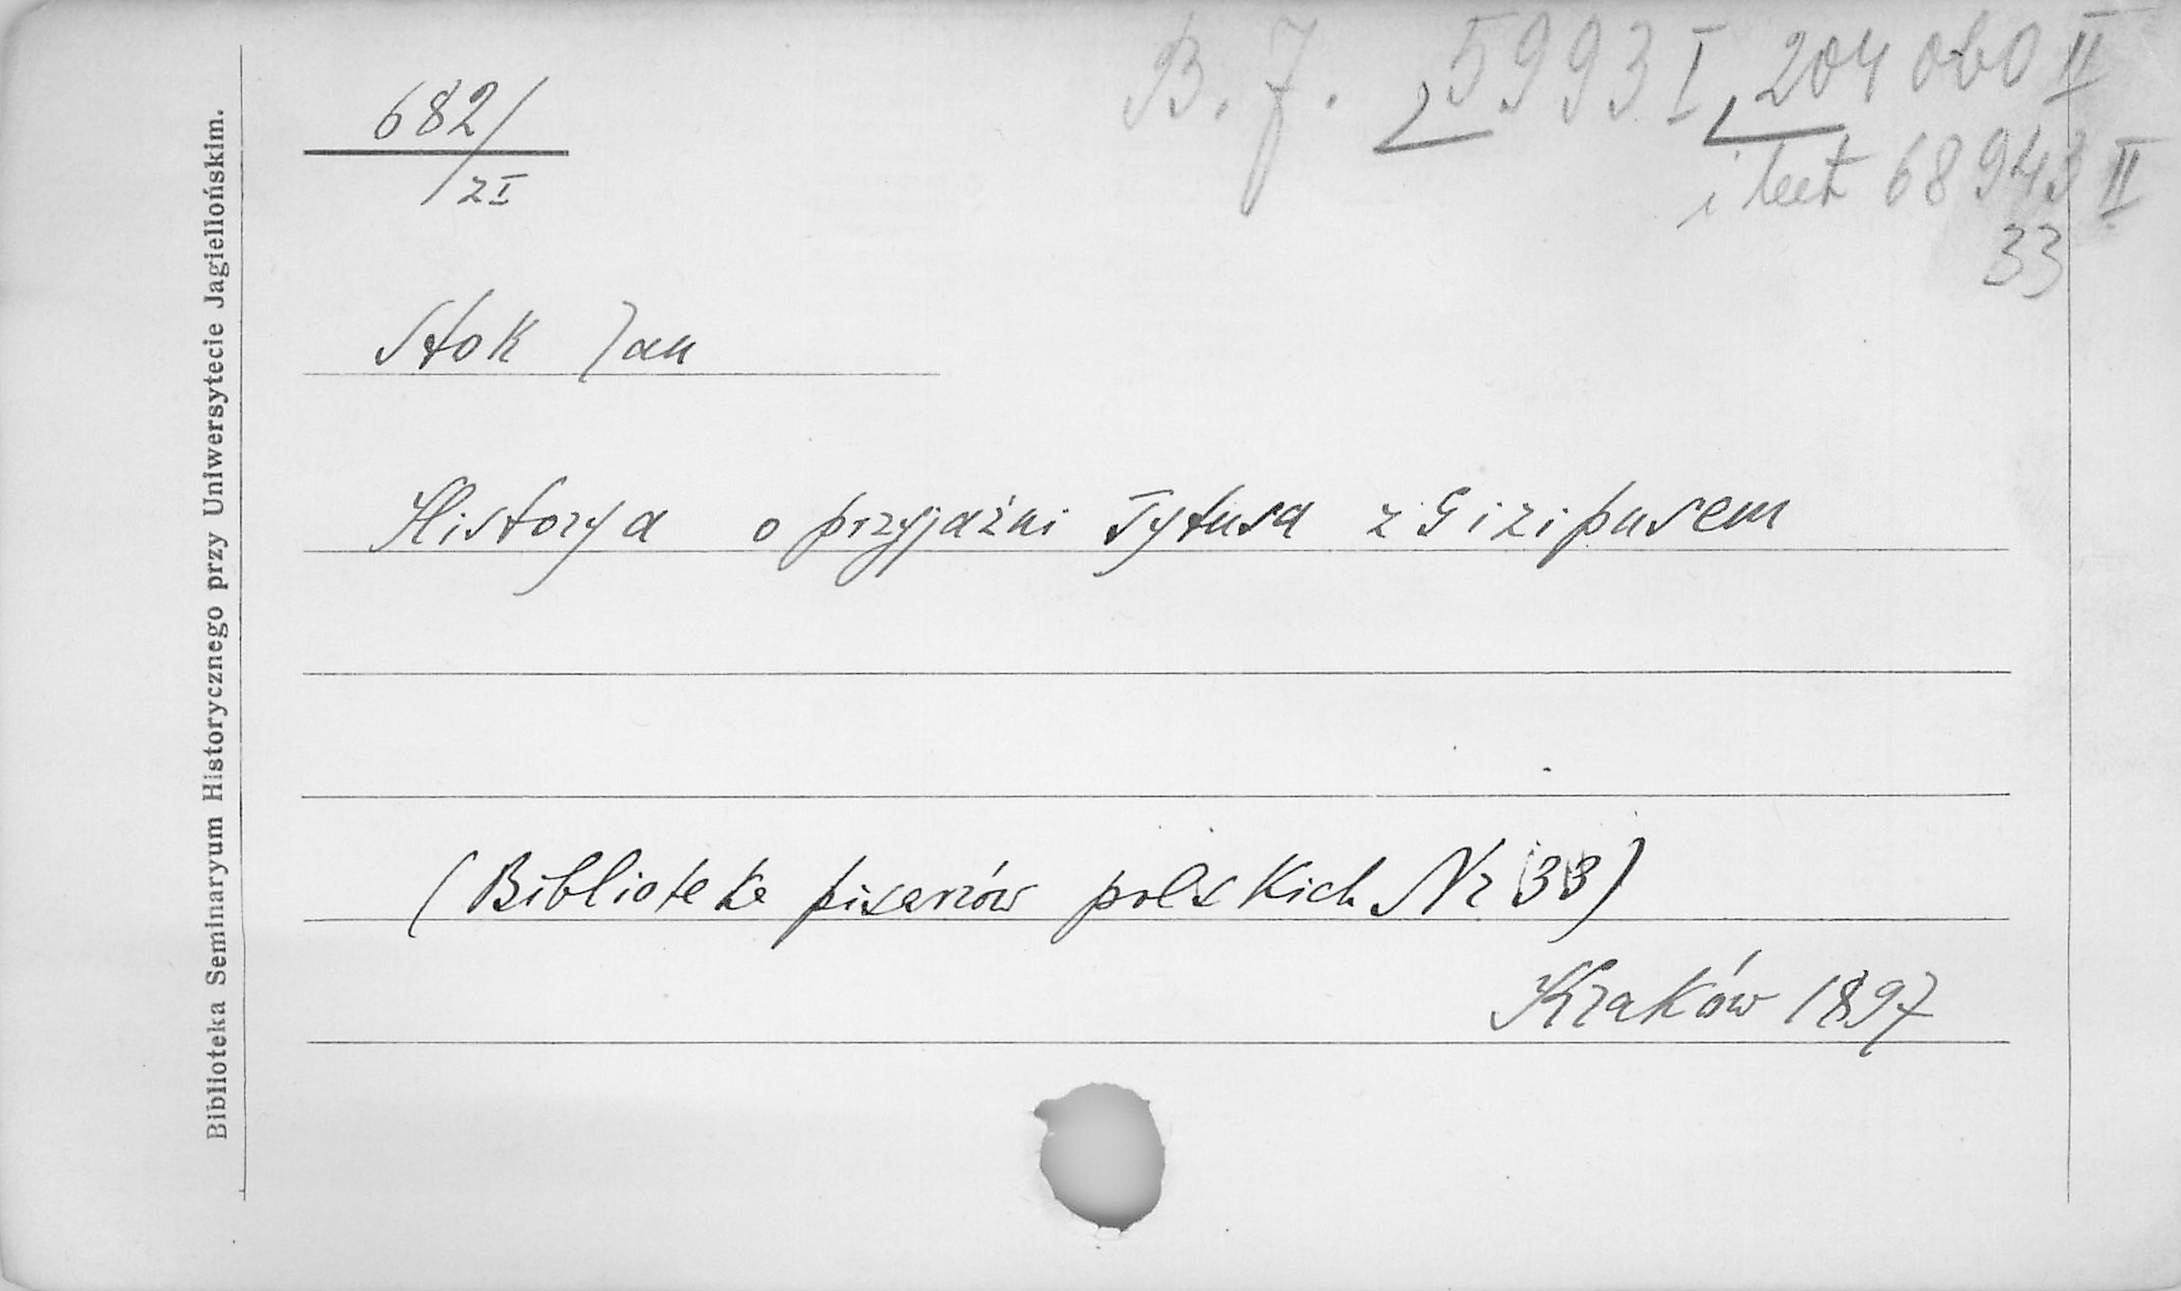 B. J. 5993 I, 204 060 II
i lect 68943 II
33
682/
z I
Stok Jan
Historya o przyjaźni Tytusa z Gizipusem
(Biblioteka pisarzów polskich Nr 33)
Kraków 1897
Biblioteka Seminaryum Historycznego przy Uniwersytecie Jagiellońskim.